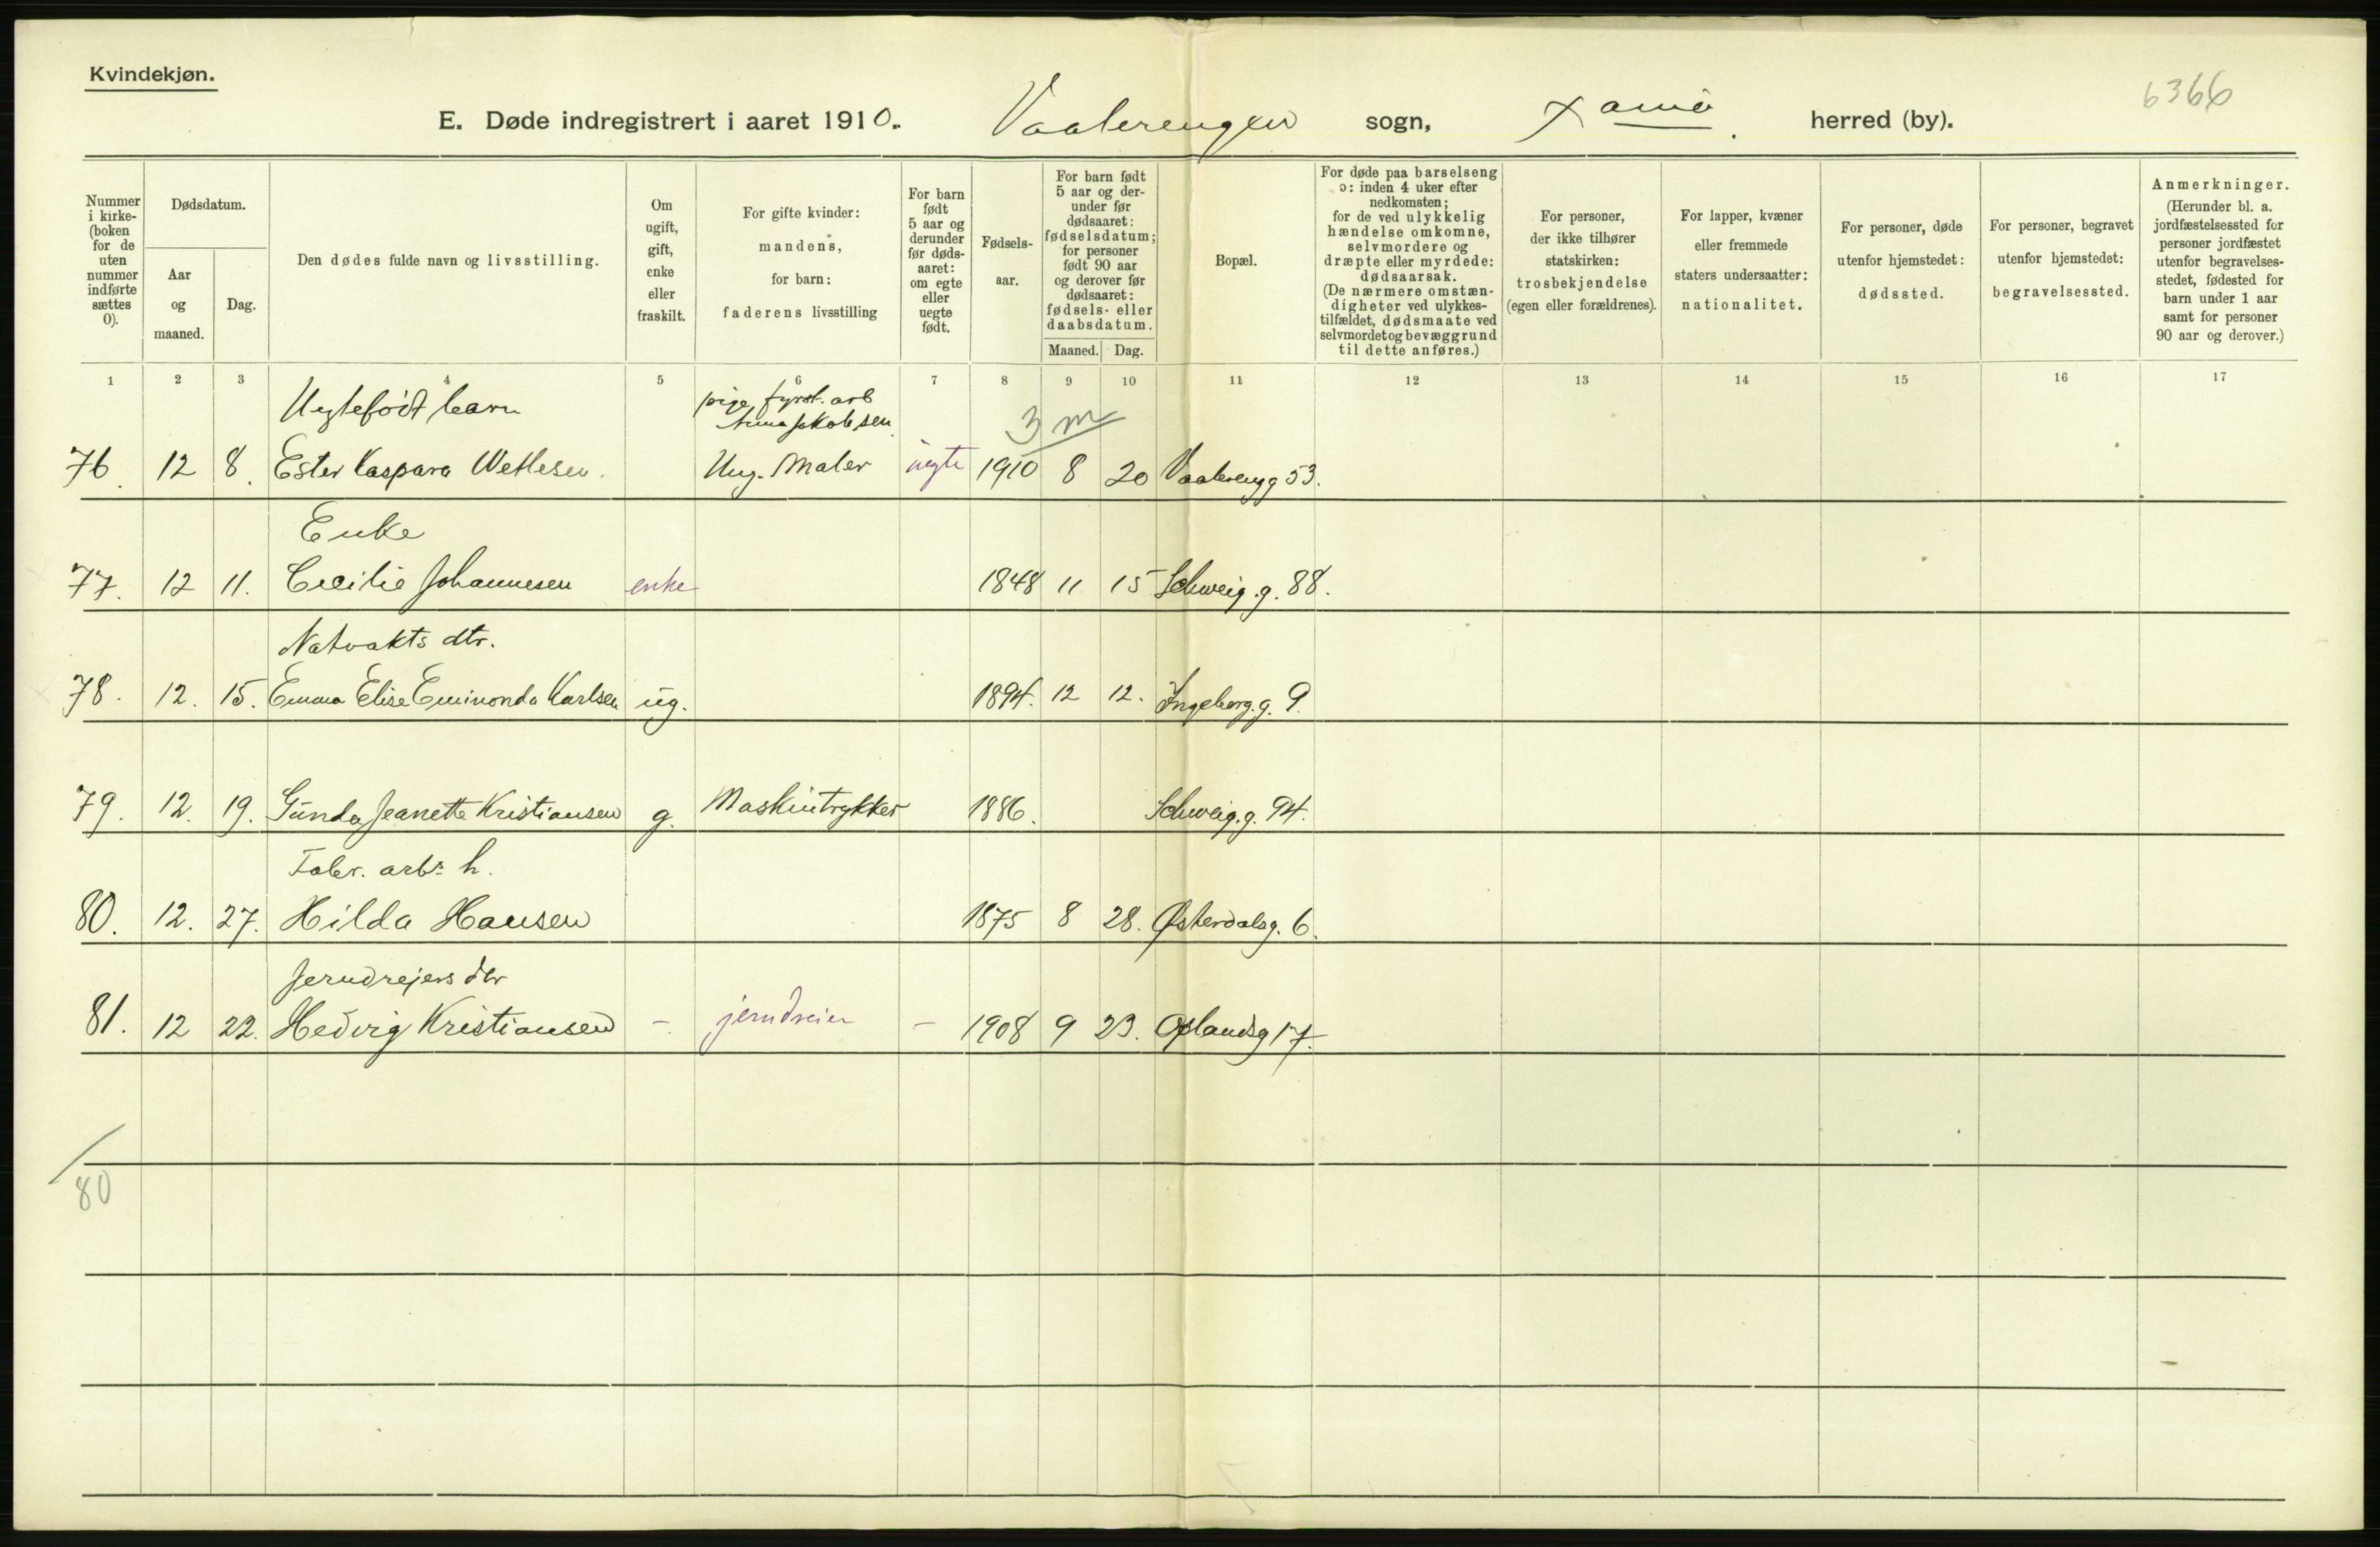 Kvindekjøn.
6366
E. Døde indregistrert i aaret 1910. Vaalerengen sogn, Xania herred (by).
Nummer i kirke- (boken for de uten nummer indførte sættes 0).
Dødsdatum.
Aar og maaned.
Dag.
Den dødes fulde navn og livsstilling.
Om ugift, gift, enke eller fraskilt.
For gifte kvinder: mandens, for barn: faderens livsstilling
For barn født 5 aar og derunder før døds- aaret: om egte eller uegte født.
Fødsels- aar.
For barn født 5 aar og der- under før dødsaaret: fødselsdatum; for personer født 90 aar og derover før dødsaaret: fødsels- eller daabsdatum.
Maaned. Dag.
Bopæl.
For døde paa barselseng ɔ: inden 4 uker efter nedkomsten; for de ved ulykkelig hændelse omkomne, selvmordere og dræpte eller myrdede: dødsaarsak. (De nærmere omstæn- digheter ved ulykkes- tilfældet, dødsmaate ved selvmordet og bevæggrund til dette anføres.)
For personer, der ikke tilhører statskirken: trosbekjendelse (egen eller forældrenes).
For lapper, kvæner eller fremmede staters undersaatter: nationalitet.
For personer, døde utenfor hjemstedet: dødssted.
For personer, begravet utenfor hjemstedet: begravelsessted.
Anmerkninger. (Herunder bl. a. jordfæstelsessted for personer jordfæstet utenfor begravelses- stedet, fødested for barn under 1 aar samt for personer 90 aar og derover.)
1 2 3 4 5 6 7 8 9 10 11 12 13 14 15 16 17
Uegtefödt barn pige, fyrst. arb
Anna Jakobsen 3 m
76. 12 8. Ester Kaspara Wetlesen. Ung. Maler uegte 1910 8 20 Vaalereng g 53.
Enke
77. 12 11. Cecilie Johannesen enke 1848 11 15 Schweig.g. 88.
Natvakts dtr.
78. 12. 15. Emma Elise Eminonda Karlsen ug. 1894. 12 12. Ingeborg.g. 9.
79. 12. 19. Gunda Jeanette Kristiansen g. Maskintrykker 1886. Schweig.g. 94.
Fabr. arb. h.
80. 12. 27. Hilda Hansen 1875 8 28. Østerdalsg. 6.
Jerndrejers dtr
81. 12 22. Hedvig Kristiansen - jerndreier - 1908 9 23. Oplandsg 17.
80